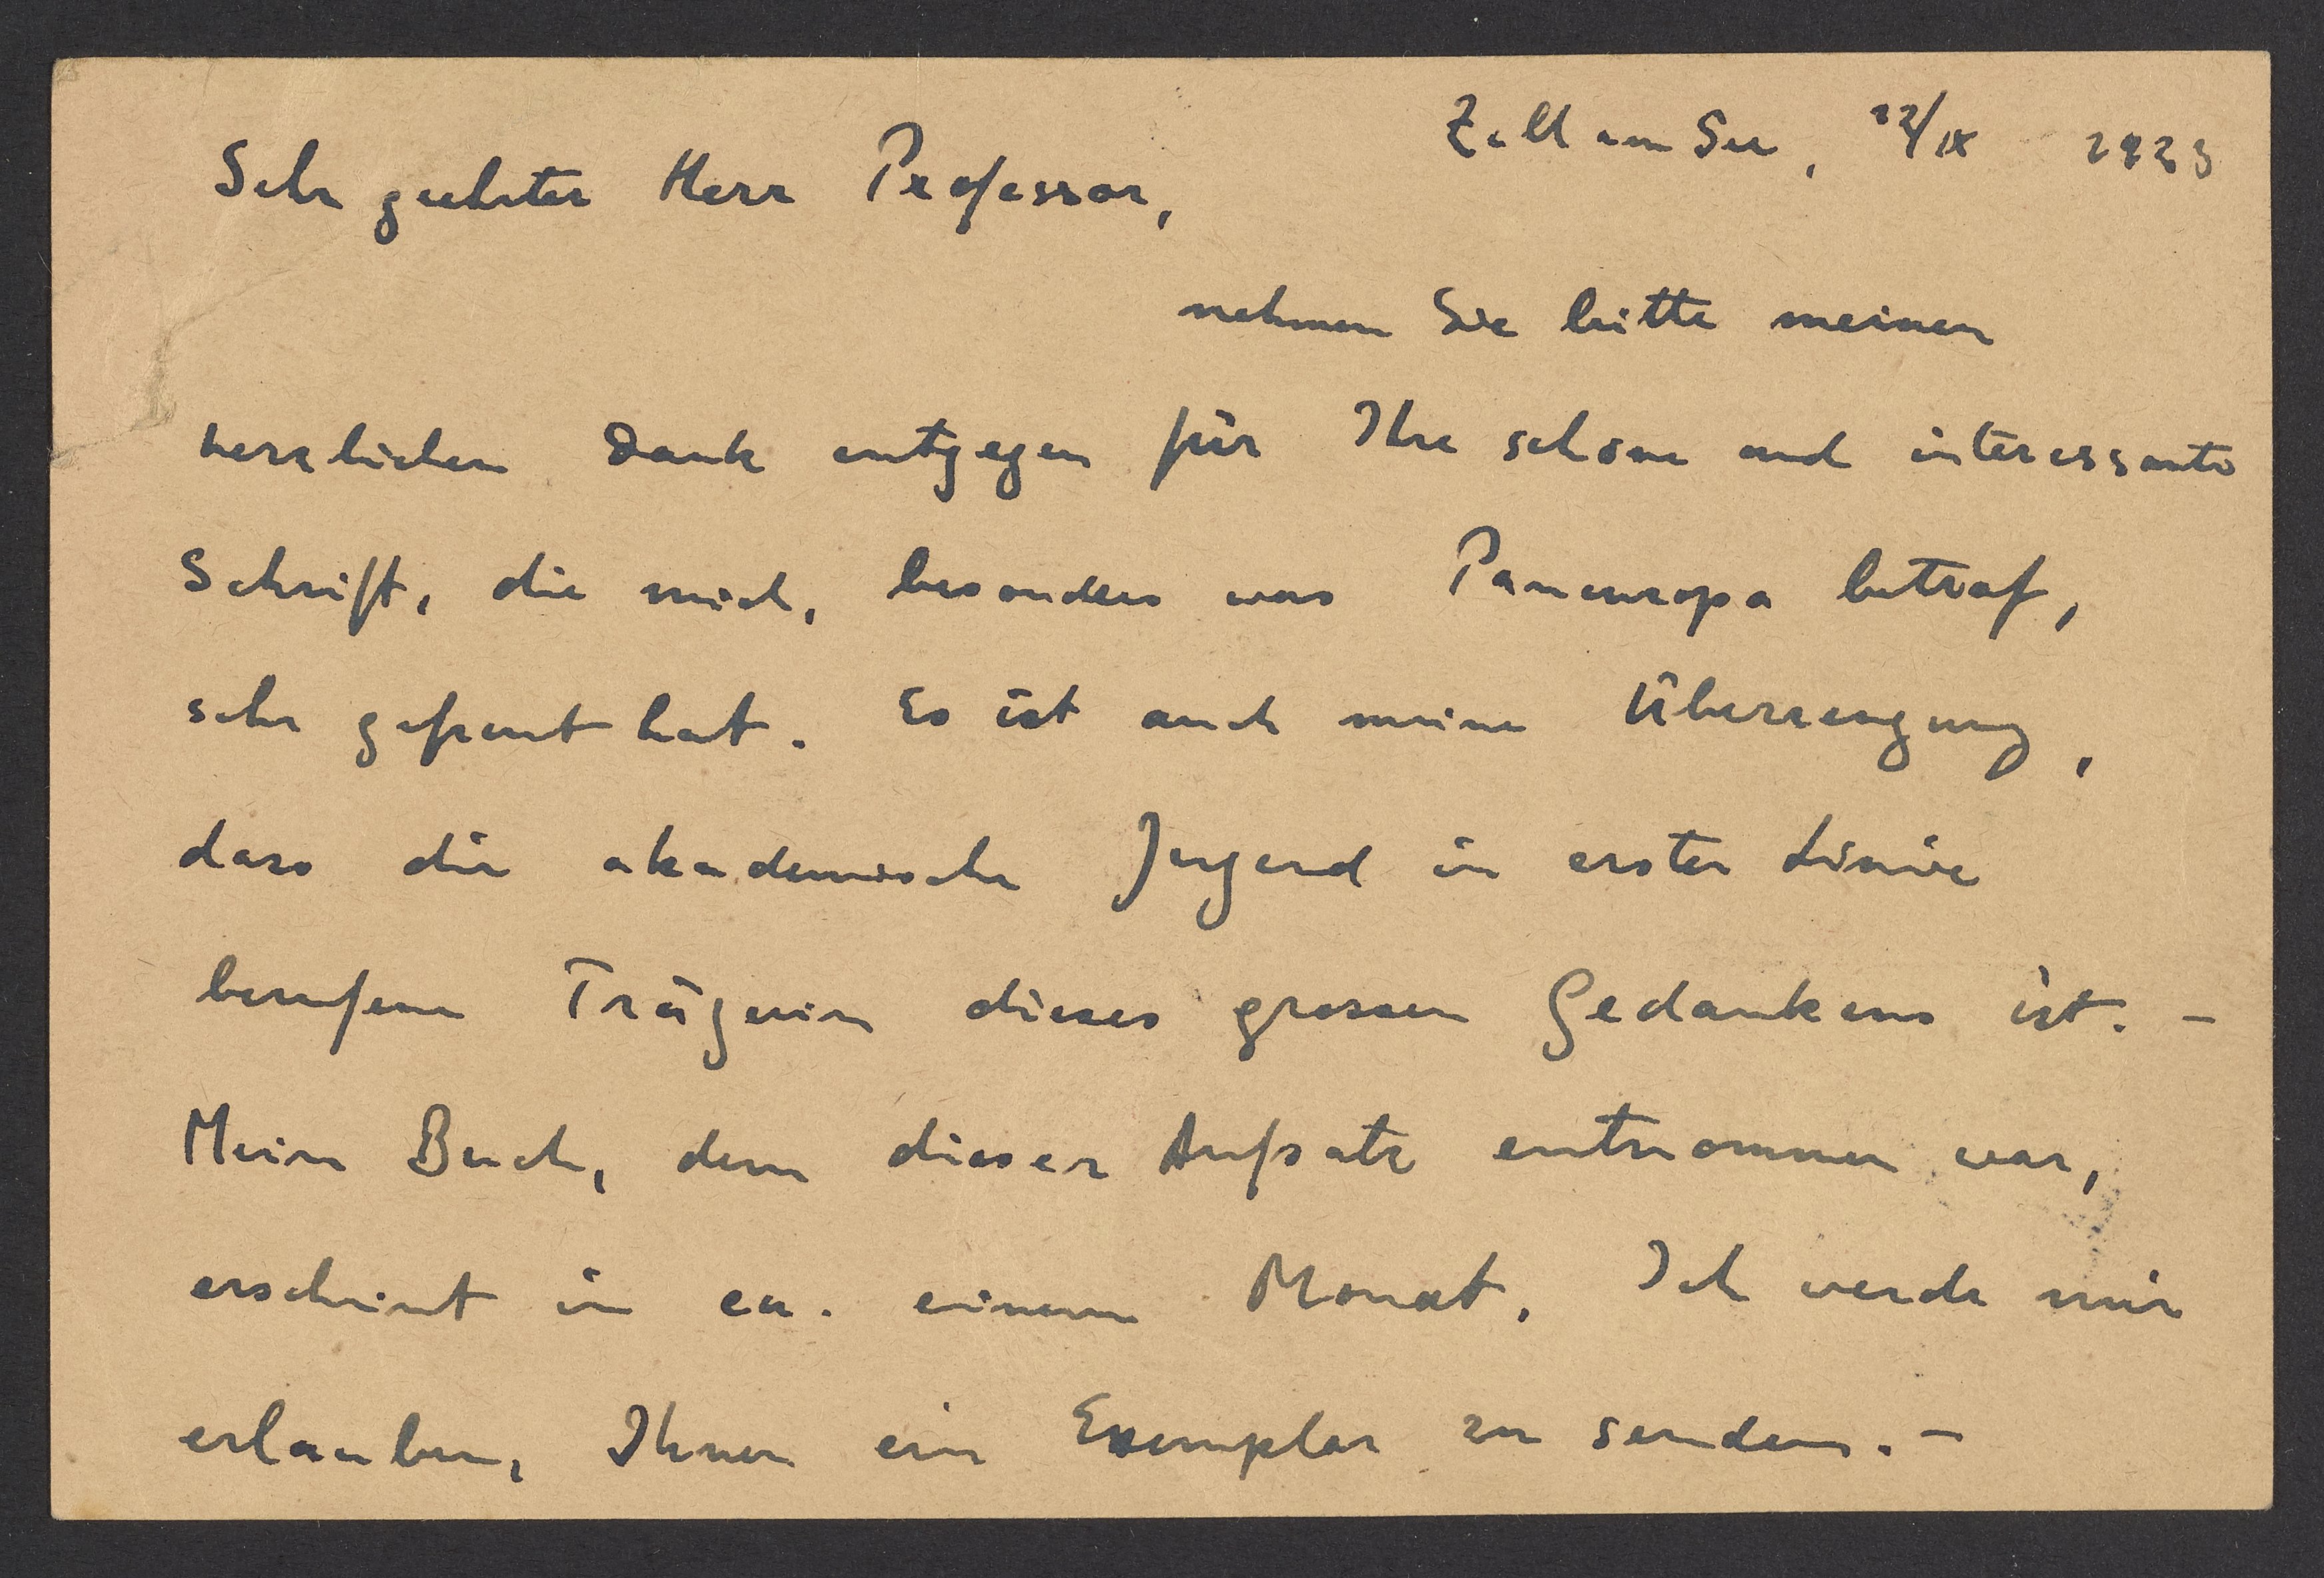 Zell am See, 12/IX 1923
Sehr geehrter Herr Professor,
nehmen Sie bitte meinen
herzlichen Dank entgegen für Ihre schöne und interessante
Schrift, die mich, besonders was Paneuropa betraf,
sehr gefreut hat. Es ist auch meine Überzeugung,
dass die akademische Jugend in erster Linie
berufene Trägerin dieses grossen Gedankens ist. –
Mein Buch, dem dieser Aufsatz entnommen war,
erscheint in ca. einem Monat. Ich werde mir
erlauben, Ihnen ein Exemplar zu senden. –